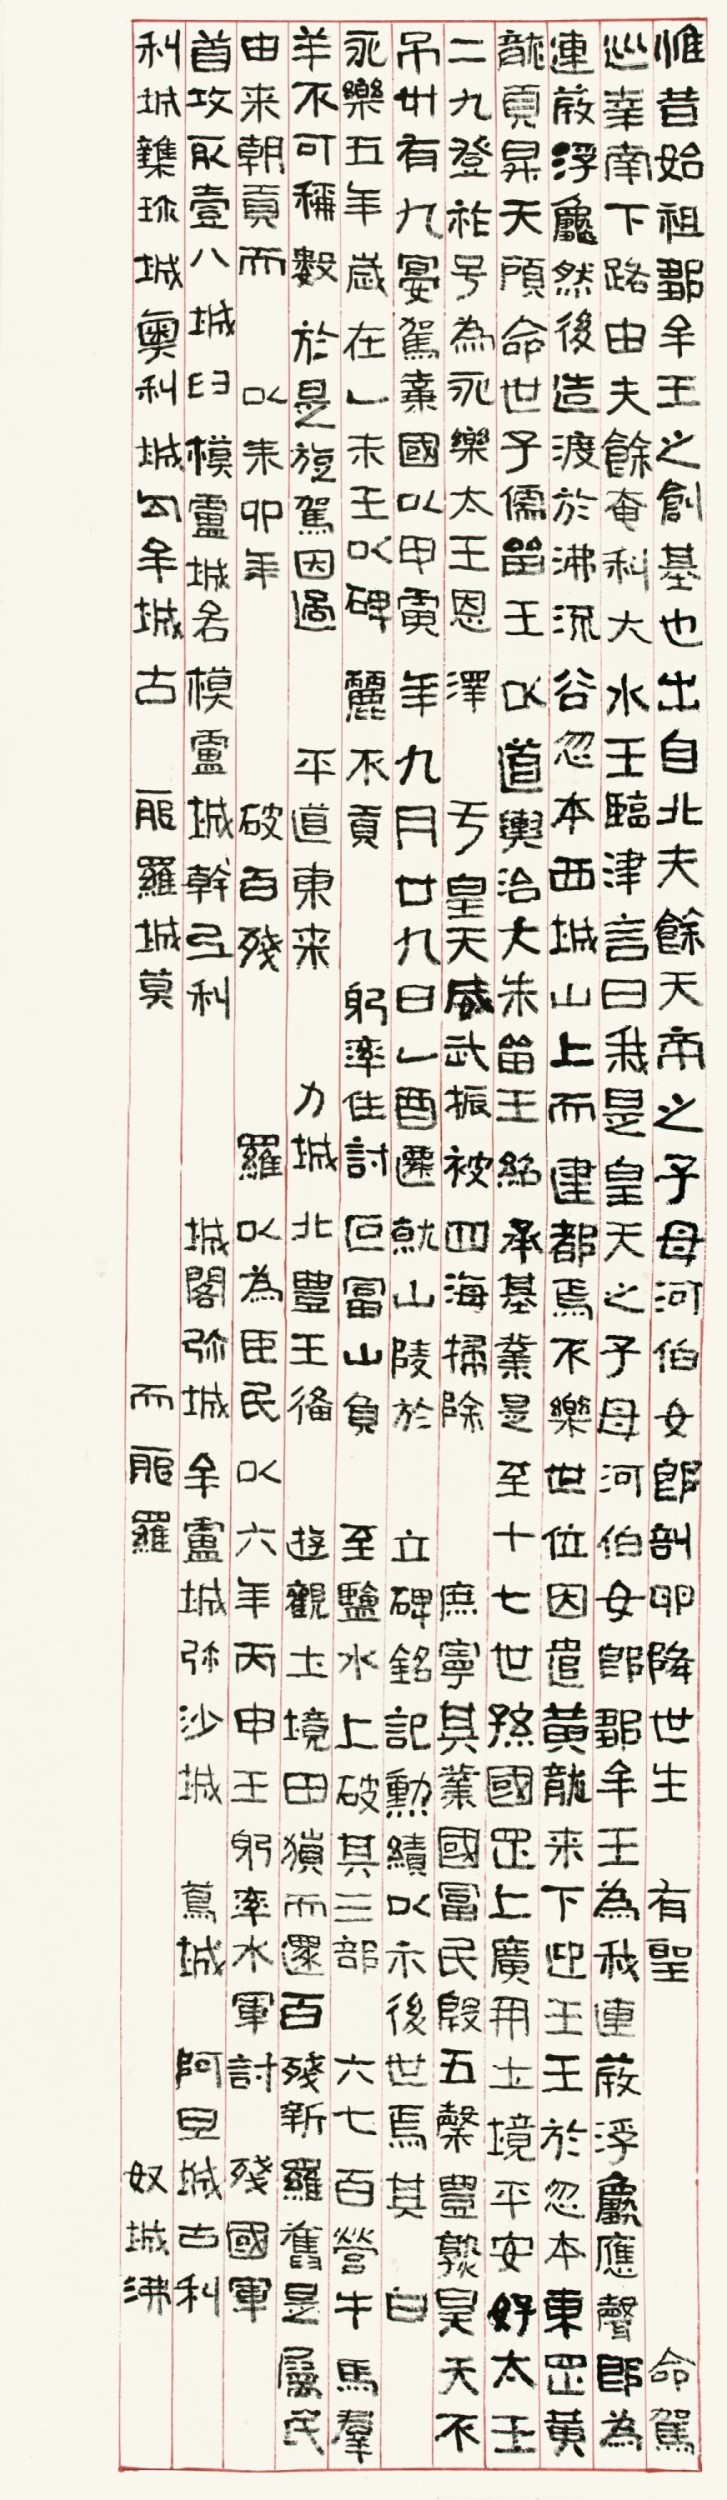 惟昔始祖鄒牟王之創基也出自北夫餘天帝之子母河伯女郎剖卵降世生 有聖 命駕
巡幸南下路由夫餘奄利大水王臨津言曰我是皇天之子母河伯女郎鄒牟王為我連葭浮龜應聲即為
連葭浮龜然後造渡於沸流谷忽本西城山上而建都焉不樂世位因遣黃龍来下迎王王於忽本東罡黃
龍頁昇天顧命世子儒留王以道輿治大朱留王紹承基業是至十七世孫國罡上廣開土境平安好太王
二九登祚号為永樂太王恩澤 于皇天威武振被四海掃除 庶寧其業國富民殷五穀豐熟昊天不
弔卅有九宴駕棄國以甲寅年九月廿九日乙酉遷就山陵於 立碑銘記勳績以示後世焉其 曰
永樂五年歲在乙未王以碑 麗不貢 躬率住討叵富山負 至鹽水上破其三部 六七百營牛馬羣
羊不可稱數於是旋駕因過 平道東来 力城北豐王備 遊觀土境田獵而還百殘新羅舊是屬民
由来朝貢而 以耒卯年 破百殘 羅以為臣民以六年丙申王躬率水軍討 殘國軍
首攻取壹八城臼模盧城名模盧城幹弖利 城閣弥城牟盧城弥沙城 蔦城 阿旦城古利
利城雜珎城奧利城勾牟城古 耶羅城莫 而耶羅 奴城沸